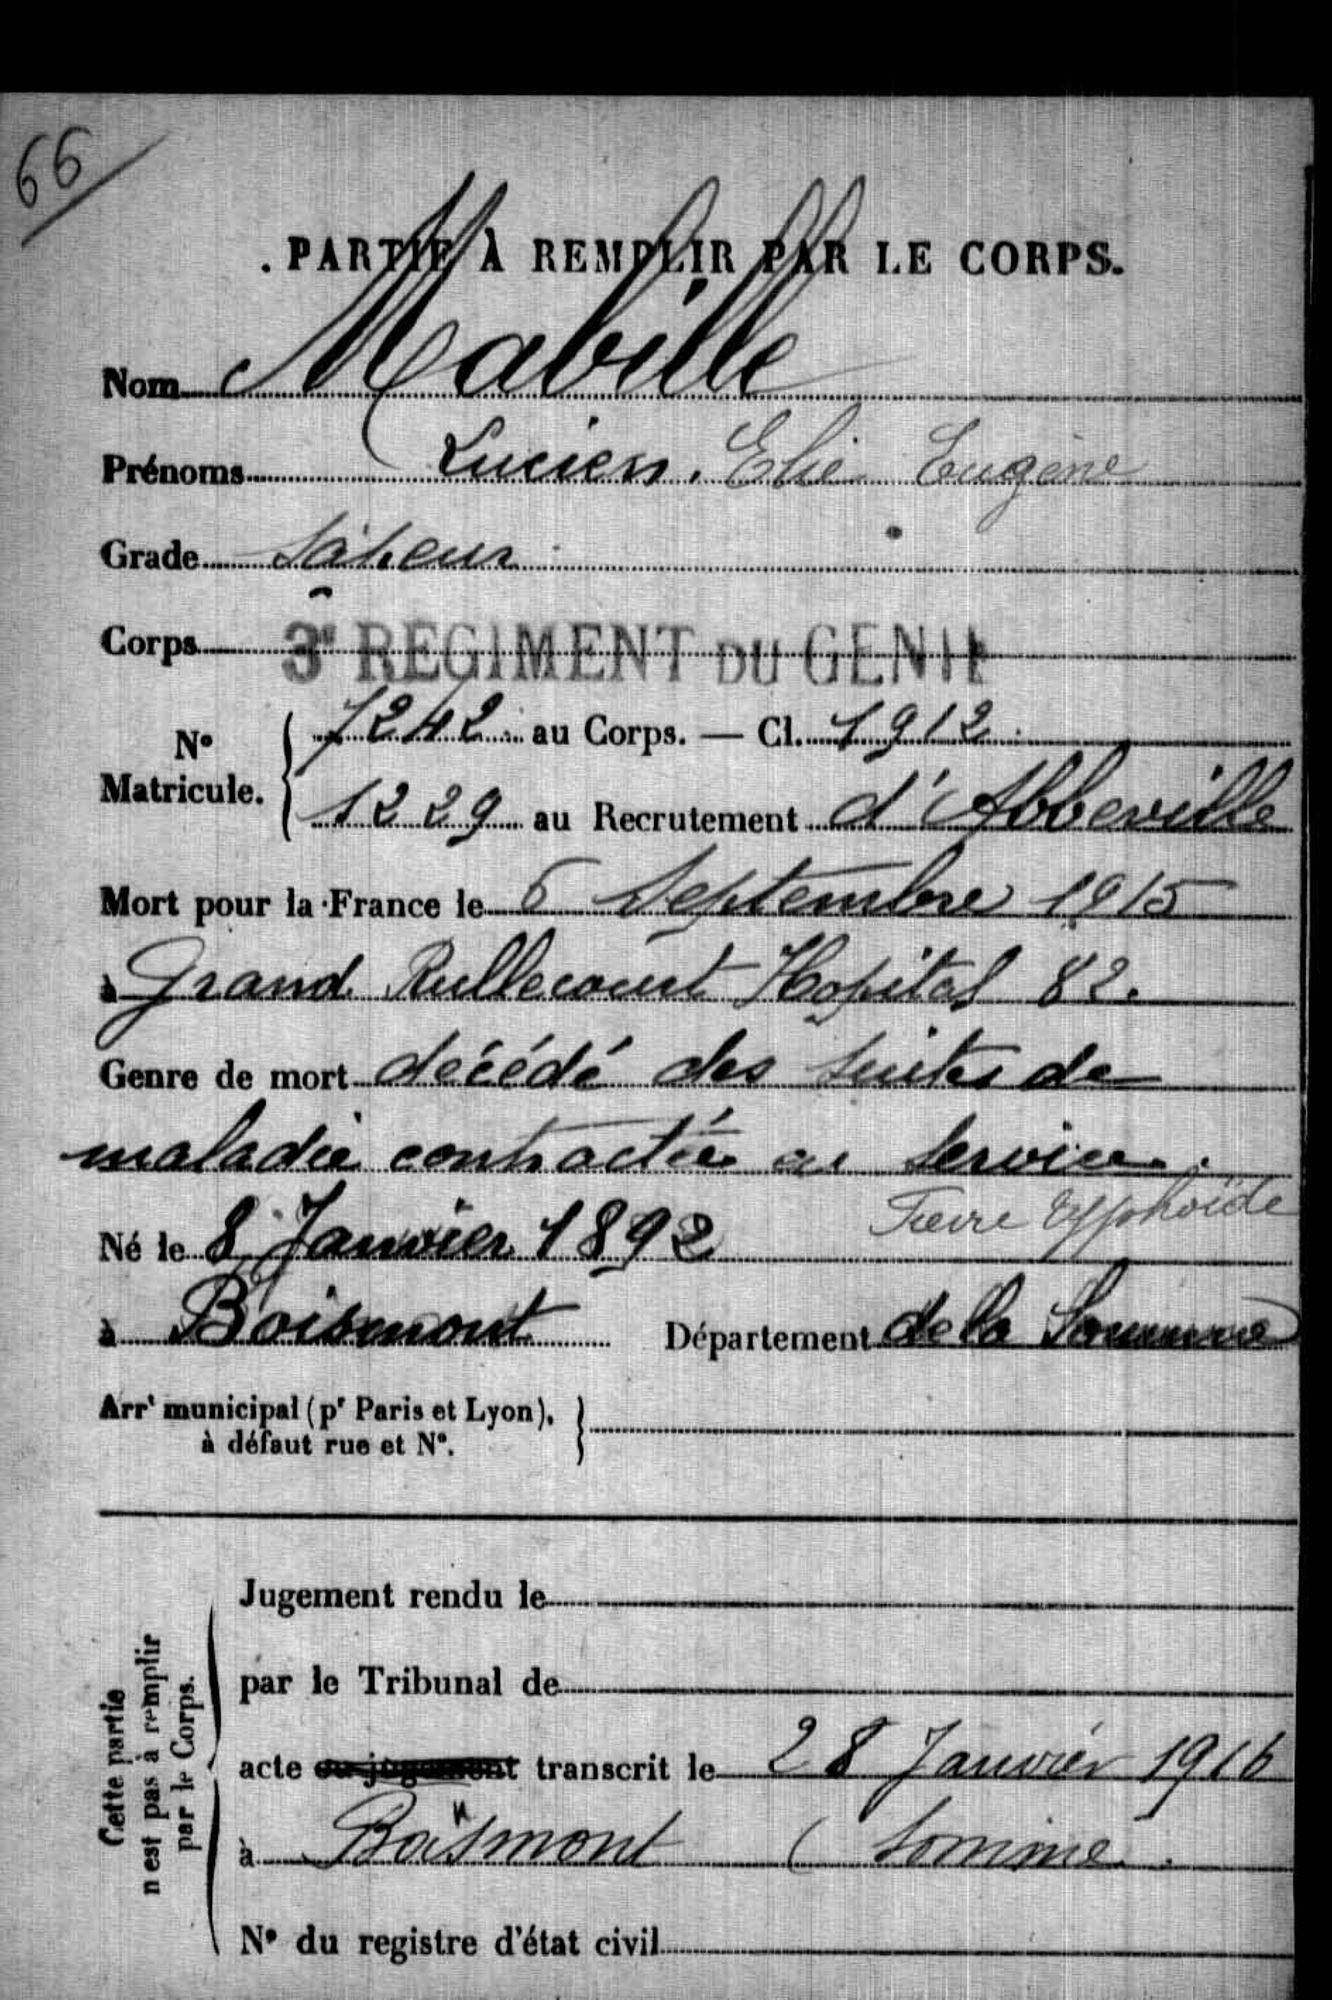 66
PARTIE À REMPLIR PAR LE CORPS.
Nom Mabille
Prénoms Lucien. Elie Eugène
Grade Sapeur
Corps 3e REGIMENT DU GENIE
No Matricule. { 7242 au Corps. — Cl. 1912
1229 au Recrutement d'Abbeville
Mort pour la France le 6 Septembre 1915
à Grand Rullecourt Hopital 82.
Genre de mort décédé des suites de
maladie contractée au service.
Fièvre typhoïde
Né le 8 Janvier 1892
à Boismont Département de la Somme
Arrt municipal (pr Paris et Lyon), }
à défaut rue et No.
Cette partie
n'est pas à remplir
par le Corps.
Jugement rendu le
par le Tribunal de
acte ou jugement transcrit le 28 Janvier 1916
à Boismont (Somme
No du registre d'état civil